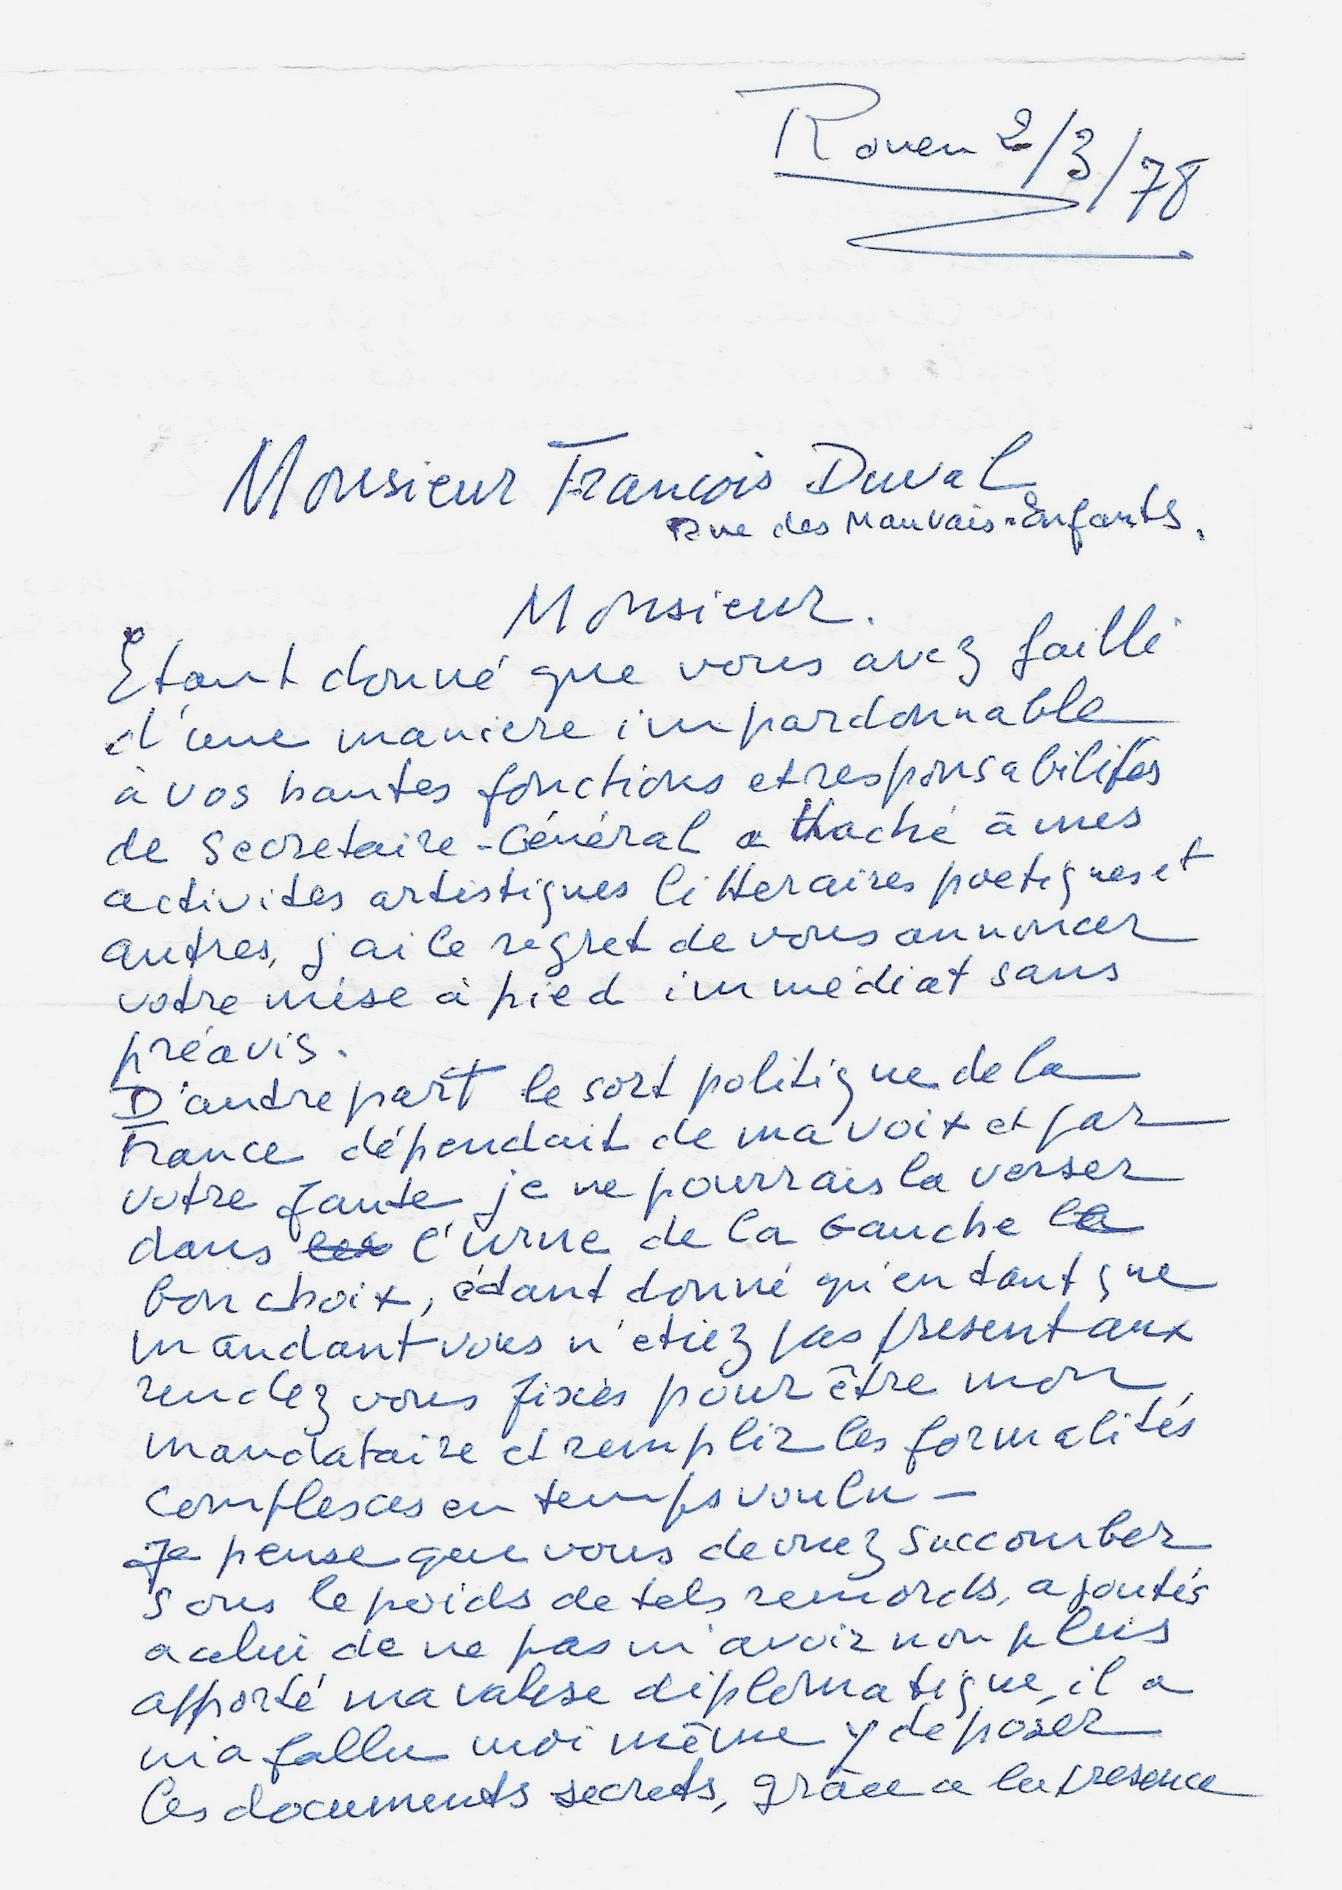 Rouen 2/3/78
Monsieur Francois Duval
Rue des Mauvais-Enfants.
Monsieur.
Etant donné que vous avez failli
d'une maniere impardonnable
à vos hautes fonctions et responsabilités
de Secretaire-Général attaché à mes
activités artistiques litteraires poetiques et
autres, j'ai le regret de vous annoncer
votre mise à pied immédiat sans
préavis.
D'autre part le sort politique de la
France dépendait de ma voix et par
votre faute je ne pourrais la verser
dans les l'urne de la Gauche le
bon choix, étant donné qu'en tant que
mandant vous n'etiez pas present aux
rendez vous fixés pour être mon
mandataire et remplir les formalités
complexes en temps voulu -
Je pense que vous devriez succomber
sous le poids de tels remords, ajoutés
a celui de ne pas m'avoir non plus
apporté ma valise diplomatique, il a
m'a fallu moi même y déposer
les documents secrets, grâce a la presence